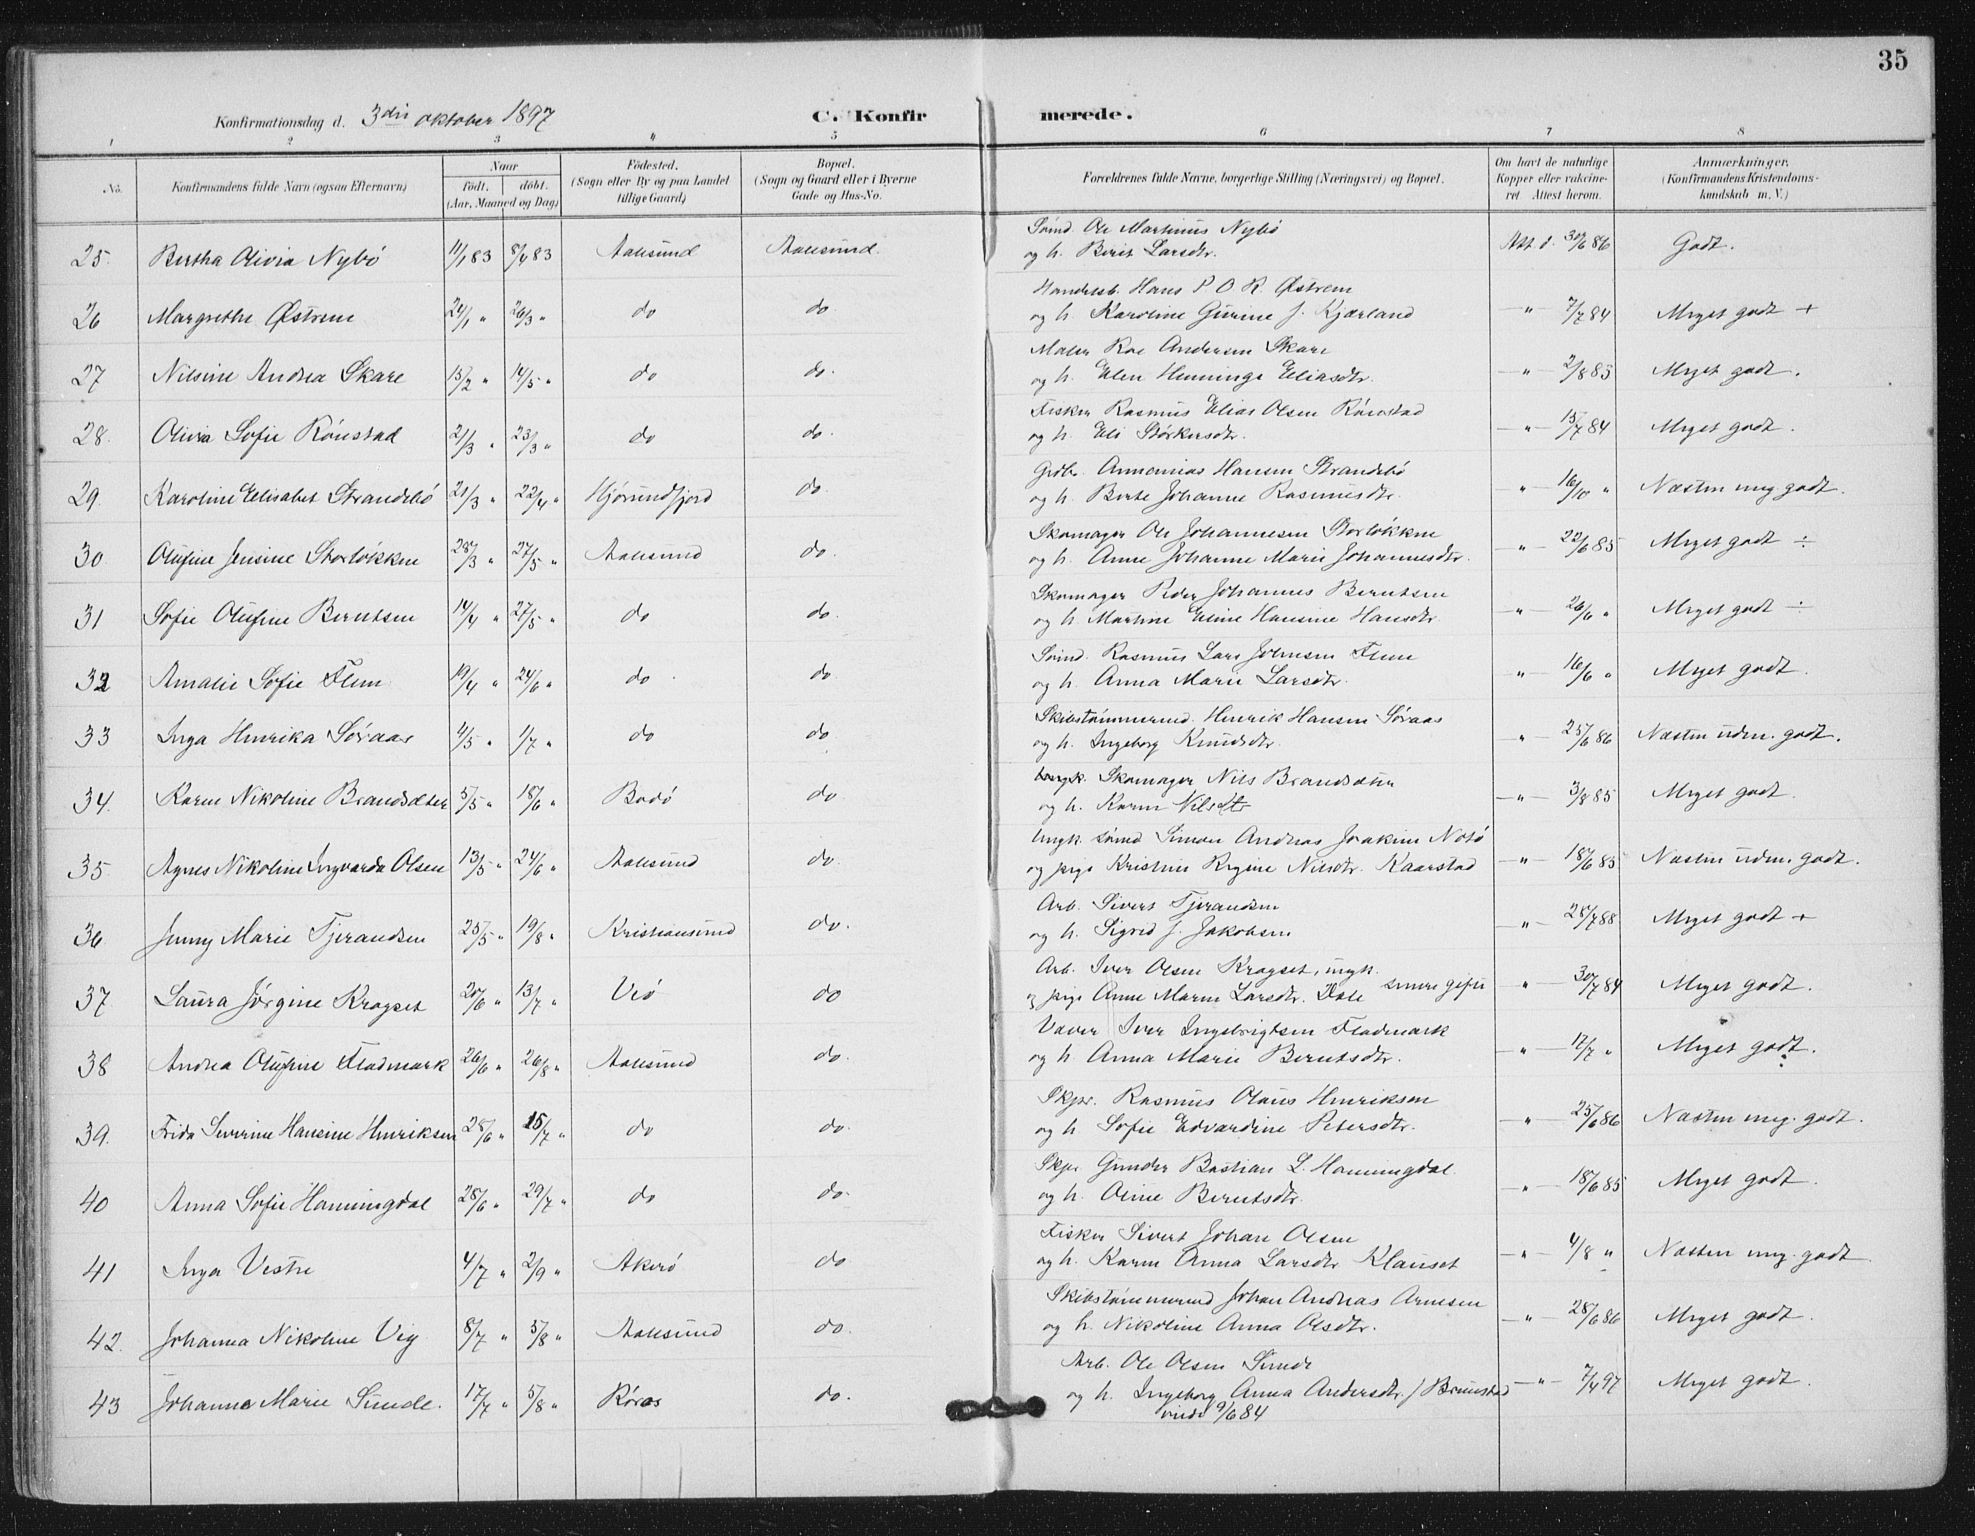 35
Konfirmationsdag d. 3die oktober 1897 C. Konfirmerede.
1 2 3 4 5 6 7 8
No. Konfirmandens fulde Navn (ogsaa Efternavn) Naar födt. döbt. (Aar, Maaned og Dag) Födested. (Sogn eller By og paa Landet tillige Gaard) Bopæl. (Sogn og Gaard eller i Byerne Gade og Hus-No. Forældrenes fulde Navne, borgerlige Stilling (Næringsvei) og Bopæl. Om havt de naturlige Kopper eller vakcineret. Attest herom. Anmærkninger. (Konfirmandens Kristendomskundskab m. V.)
25. Bertha Olivia Nybö 11/1 83 8/4 83 Aalesund Aalesund. Sömd Ole Martinus Nybö
og h. Berit Larsdtr. Att d. 30/6 86 Godt.
26 Margrethe Østrem 24/1 " 26/3 " do do Handelsb. Hans P O R. Østrem
og h. Karoline Gurine f. Kjærland " 7/7 84 Meget godt +
27 Nilsine Andrea Skare 15/2 " 14/5 " do do. Maler Roe Andersen Skare
og h. Elen Henninge Eliasdtr. " 2/8 83 Meget godt.
28. Olivia Sofie Rönstad 2/3 " 23/3 " do do. Fisker Rasmus Elias Olsen Rönstad
og h. Eli Störkersdtr. " 15/7 84 Meget godt.
29. Karoline Elisabet Strandebö 21/3 " 22/4 " Hjörundfjord do. Grdbr. Annanias Hansen Strandebö
og h. Berte Johanne Rasmusdtr. " 16/10 " Næsten meg godt.
30 Olufine Jensine Storlökken 28/3 " 27/5 " Aalesund do. Skomager Ole Johannesen Storlökken
og h. Anne Johanne Marie Johannesdtr. " 22/6 85 Meget godt ÷
31 Sofie Olufine Berntsen 14/4 " 27/5 " do do. Skomager Peder Johannes Berntsen
og h. Martine Eline Hansine Hansdtr " 26/6 " Meget godt ÷
32 Amalie Sofie Flem 19/4 " 24/6 " do. do Sömd. Rasmus Lars Johnsen Flem
og h. Anna Marie Larsdtr. " 16/6 " Meget godt.
33 Inga Henrika Søraas 4/5 " 1/7 " do do Skibstömmermd. Henrik Hansen Søraas
og h. Ingeborg Knudsdtr. " 25/6 86 Næsten udm. godt.
34. Karen Nikoline Brandsæter 5/5 " 18/6 " Bodö do Skomager Nils Brandsæter
og h. Karen Nilsdtr " 3/8 85 Meget godt.
35 Agnes Nikoline Ingvarda Olsen 13/5 " 24/6 " Aalesund do. Ungk. sömd Simon Andreas Joakim
og pige Kristine Regine Nilsdtr. Kaarstad " 18/6 85 Næsten udm. godt.
36 Jenny Marie Tjerandsen 25/5 " 19/8 " Kristiansund do. Arb. Sivert Tjerandsen
og h. Sigrid f. Jakobsen " 28/7 88 Meget godt +
37 Laura Jørgine Kragset 20/6 " 13/7 " Veö do Arb. Iver Olsen Kragset, ungk.
og pige Anne Marie Larsdtr. Dale senere gifte " 30/7 84 Meget godt.
38 Andrea Olufine Fladmark 26/6 " 26/8 " Aalesund do. Væver Iver Ingebrigtsen Fladmark
og h. Anna Marie Berntsdtr. " 17/7 " Meget godt.
39. Frida Severine Hansine Henriksen 28/6 " 15/7 " do do. Skpr. Rasmus Olaus Henriksen
og h. Sofie Edvardine Petersdtr. " 25/6 86 Næsten meg. godt.
40 Anna Sofie Hanningdal 28/6 " 29/7 " do do. Skpr Gunder Bastian L. Hanningdal
og h. Oline Berntsdtr. " 18/6 85 Meget godt.
41 Inga Vestre 4/7 " 2/9 " Akerö do Fisker Sivert Johan Olsen
og h. Karen Anna Larsdtr Klauset " 4/8 " Næsten meg. godt
42. Johanna Nikoline Vig 8/7 " 5/8 " Aalesund do. Skibstömmermd Johan Andreas Arnesen
og h. Nikoline Anna Olsdtr. " 28/6 86 Meget godt.
43 Johanne Marie Sunde. 17/7 " 5/8 " Röros do. Arb. Ole Olsen Sunde
og h. Ingeborg Anna Andersdtr. f Brunstad
viede 9/6 84 " 7/4 97 Meget godt.